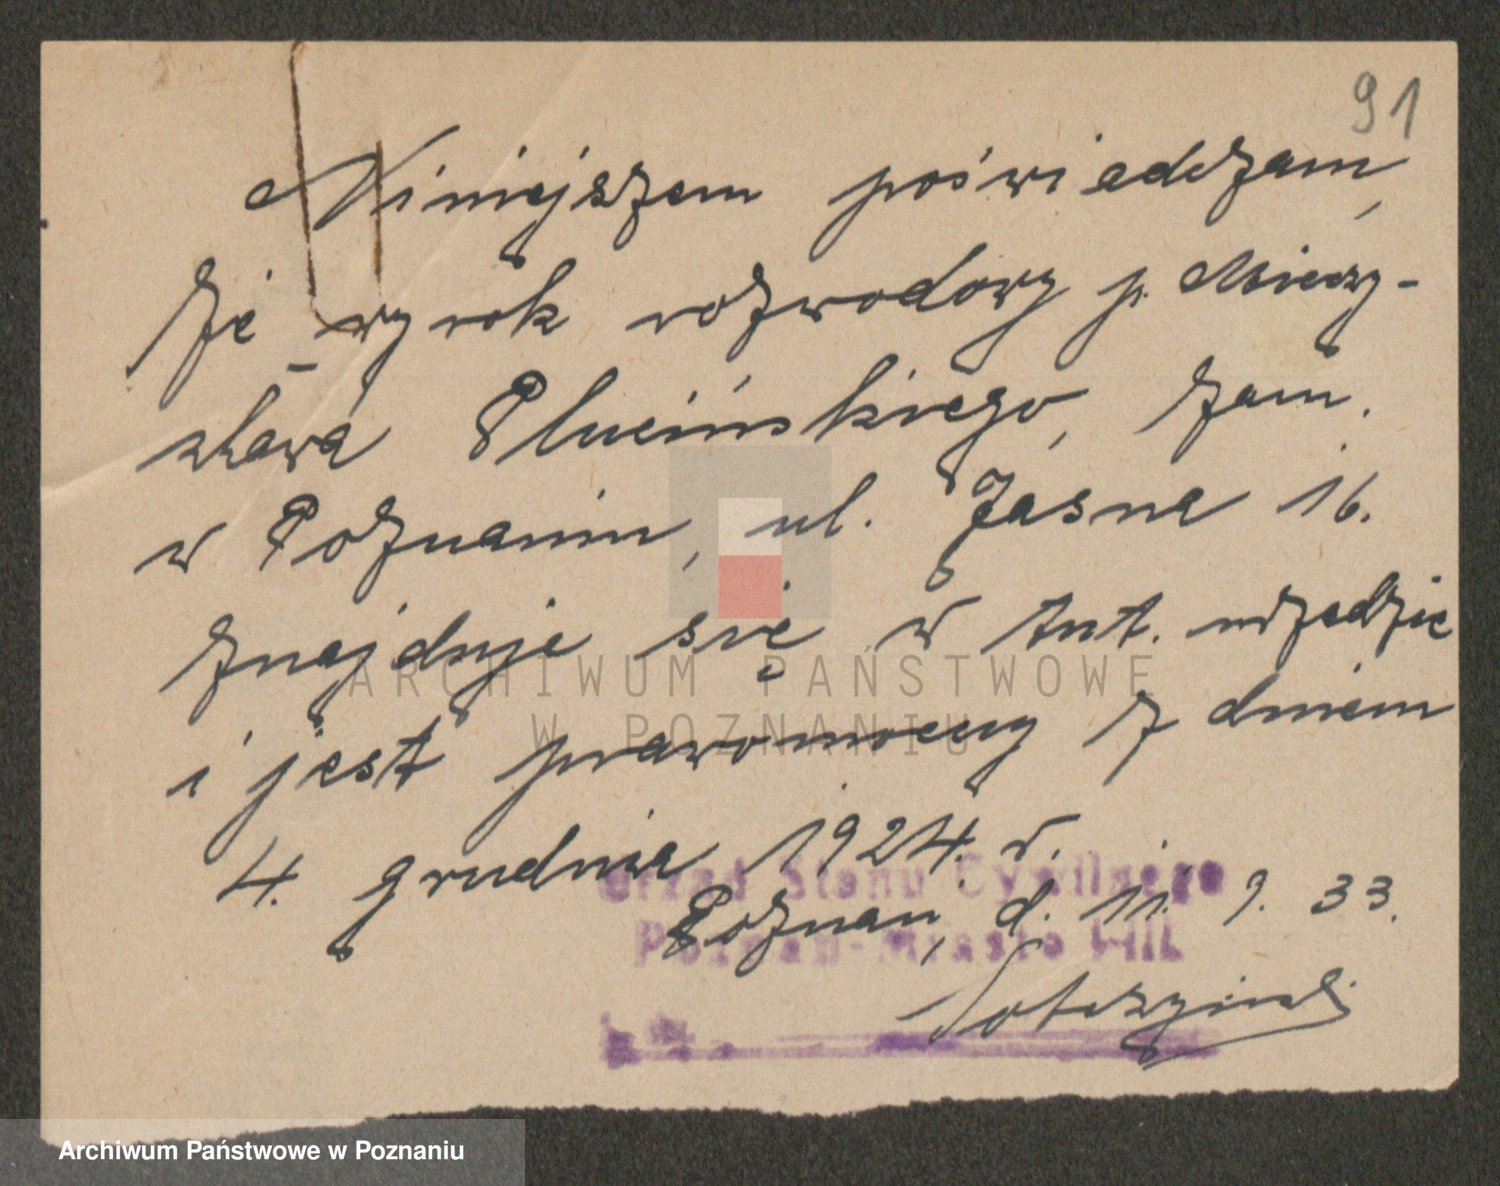 91
Niniejszem poświadczam,
że wyrok rozwodowy p. Mieczy-
sława Plucińskiego, zam.
w Poznaniu, ul. Jasna 16.
znajduje się w tut. urzędzie
i jest prawomocny z dniem
4. grudnia 1924. r.
Urząd Stanu Cywilnego
Poznań, d. 11. 9. 33.
Poznań-Miasto I-III.
ARCHIWUM PAŃSTWOWE
W POZNANIU
Archiwum Państwowe w Poznaniu